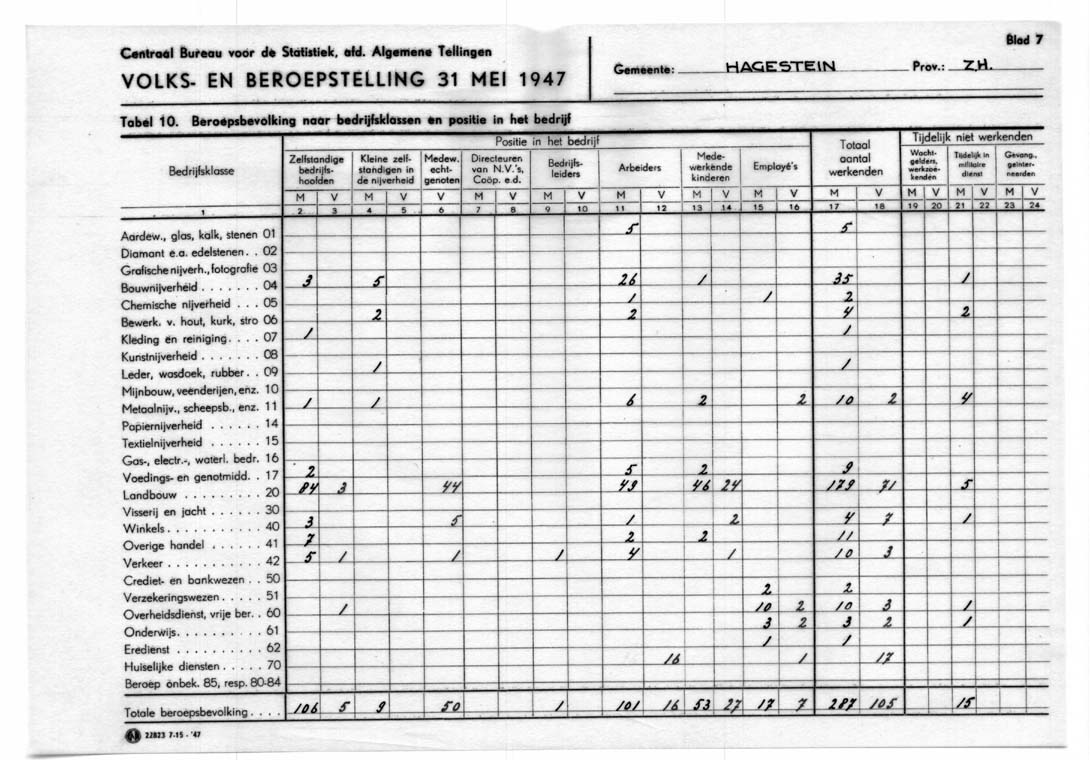 Blad 7
Centraal Bureau voor de Statistiek, afd. Algemene Tellingen
VOLKS- EN BEROEPSTELLING 31 MEI 1947
Gemeente: HAGESTEIN Prov.: Z.H.
Tabel 10. Beroepsbevolking naar bedrijfsklassen en positie in het bedrijf
Bedrijfsklasse
Positie in het bedrijf
Zelfstandige bedrijfs-hoofden
Kleine zelf-standigen in de nijverheid
Medew. echt-genoten
Directeuren van N.V.'s, Coöp. e.d.
Bedrijfs-leiders
Arbeiders
Mede-werkende kinderen
Employé's
Totaal aantal werkenden
Tijdelijk niet werkenden
Wacht-gelders, werkzoe-kenden
Tijdelijk in militaire dienst
Gevang., geïnter-neerden
M V M V V M V M V M V M V M V M V M V M V M V
1 2 3 4 5 6 7 8 9 10 11 12 13 14 15 16 17 18 19 20 21 22 23 24
Aardew., glas, kalk, stenen 01 5 5
Diamant e.a. edelstenen . . 02
Grafische nijverh., fotografie 03
Bouwnijverheid . . . . . . . 04 3 5 26 1 35 1
Chemische nijverheid . . . 05 1 1 2
Bewerk. v. hout, kurk, stro 06 2 2 4 2
Kleding en reiniging. . . . 07 1 1
Kunstnijverheid . . . . . . . 08
Leder, wasdoek, rubber. . 09 1 1
Mijnbouw, veenderijen, enz. 10
Metaalnijv., scheepsb., enz. 11 1 1 6 2 2 10 2 4
Papiernijverheid . . . . . . 14
Textielnijverheid . . . . . . 15
Gas-, electr.-, waterl. bedr. 16
Voedings- en genotmidd. . 17 2 5 2 9
Landbouw . . . . . . . . . 20 84 3 44 49 46 24 179 71 5
Visserij en jacht . . . . . . 30
Winkels. . . . . . . . . . . 40 3 5 1 2 4 7 1
Overige handel . . . . . . 41 7 2 2 11
Verkeer . . . . . . . . . . . 42 5 1 1 1 4 1 10 3
Crediet- en bankwezen . . 50
Verzekeringswezen. . . . . 51 2 2
Overheidsdienst, vrije ber. . 60 1 10 2 10 3 1
Onderwijs. . . . . . . . . . 61 3 2 3 2 1
Eredienst . . . . . . . . . . 62 1 1
Huiselijke diensten . . . . . 70 16 1 17
Beroep onbek. 85, resp. 80-84
Totale beroepsbevolking . . . . 106 5 9 50 1 101 16 53 27 17 7 287 105 15
22823 7-15 - '47